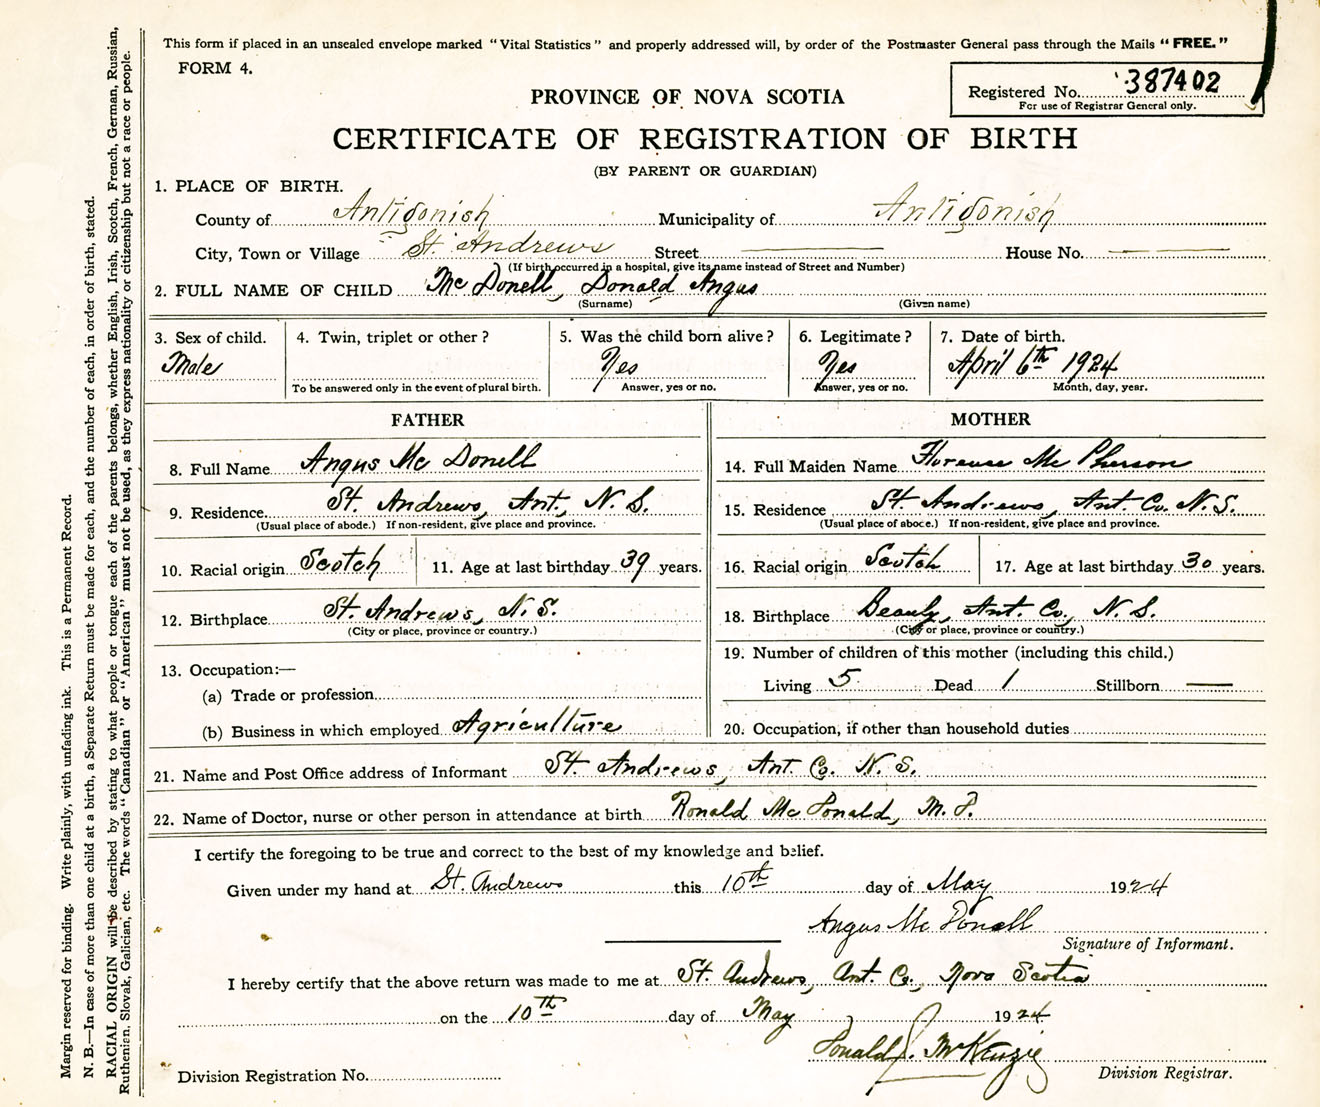 This form if placed in an unsealed envelope marked "Vital Statistics" and properly addressed will, by order of the Postmaster General pass through the Mails "FREE."
FORM 4.
Registered No. 387402
For use of Registrar General only.
PROVINCE OF NOVA SCOTIA
CERTIFICATE OF REGISTRATION OF BIRTH
(BY PARENT OR GUARDIAN)
1. PLACE OF BIRTH.
County of Antigonish Municipality of Antigonish
City, Town or Village St. Andrews Street House No.
(If birth occurred in a hospital, give its name instead of Street and Number)
2. FULL NAME OF CHILD Mc Donell, Donald Angus
(Surname) (Given name)
3. Sex of child. 4. Twin, triplet or other? 5. Was the child born alive? 6. Legitimate? 7. Date of birth.
Male Yes Yes April 6th 1924
To be answered only in the event of plural birth. Answer, yes or no. Answer, yes or no. Month, day, year.
FATHER
8. Full Name Angus Mc Donell
9. Residence St. Andrews, Ant., N. S.
(Usual place of abode.) If non-resident, give place and province.
10. Racial origin Scotch 11. Age at last birthday 39 years.
12. Birthplace St. Andrews, N. S.
(City or place, province or country.)
13. Occupation:—
(a) Trade or profession
(b) Business in which employed Agriculture
MOTHER
14. Full Maiden Name Florence Mc Pherson
15. Residence St. Andrews, Ant. Co. N. S.
(Usual place of abode.) If non-resident, give place and province.
16. Racial origin Scotch 17. Age at last birthday 30 years.
18. Birthplace Beauly, Ant. Co., N. S.
(City or place, province or country.)
19. Number of children of this mother (including this child.)
Living 5 Dead 1 Stillborn —
20. Occupation, if other than household duties
21. Name and Post Office address of Informant St. Andrews, Ant. Co. N. S.
22. Name of Doctor, nurse or other person in attendance at birth Ronald Mc Donald, M. D.
I certify the foregoing to be true and correct to the best of my knowledge and belief.
Given under my hand at St. Andrews this 10th day of May 1924
Angus Mc Donell
Signature of Informant.
I hereby certify that the above return was made to me at St. Andrews, Ant. Co., Nova Scotia
on the 10th day of May 1924
Donald J. McKenzie
Division Registration No. Division Registrar.
Margin reserved for binding. Write plainly, with unfading ink. This is a Permanent Record.
N. B.—In case of more than one child at a birth, a Separate Return must be made for each, and the number of each, in order of birth, stated.
RACIAL ORIGIN will be described by stating to what people or tongue each of the parents belongs, whether English, Irish, Scotch, French, German, Russian,
Ruthenian, Slovak, Galician, etc. The words "Canadian" or "American" must not be used, as they express nationality or citizenship but not a race or people.